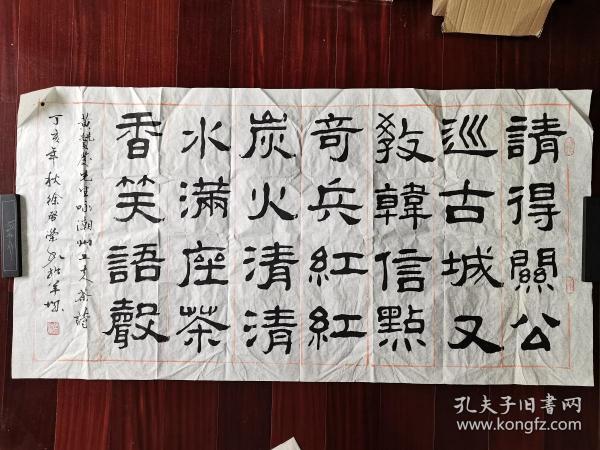 請得關公
巡古城又
教韓信點
奇兵紅紅
炭火清清
水滿座茶
香笑語聲
黃贊發先生咏潮州工夫茶詩
丁亥年秋徐
孔夫子旧书网
www.kongfz.com